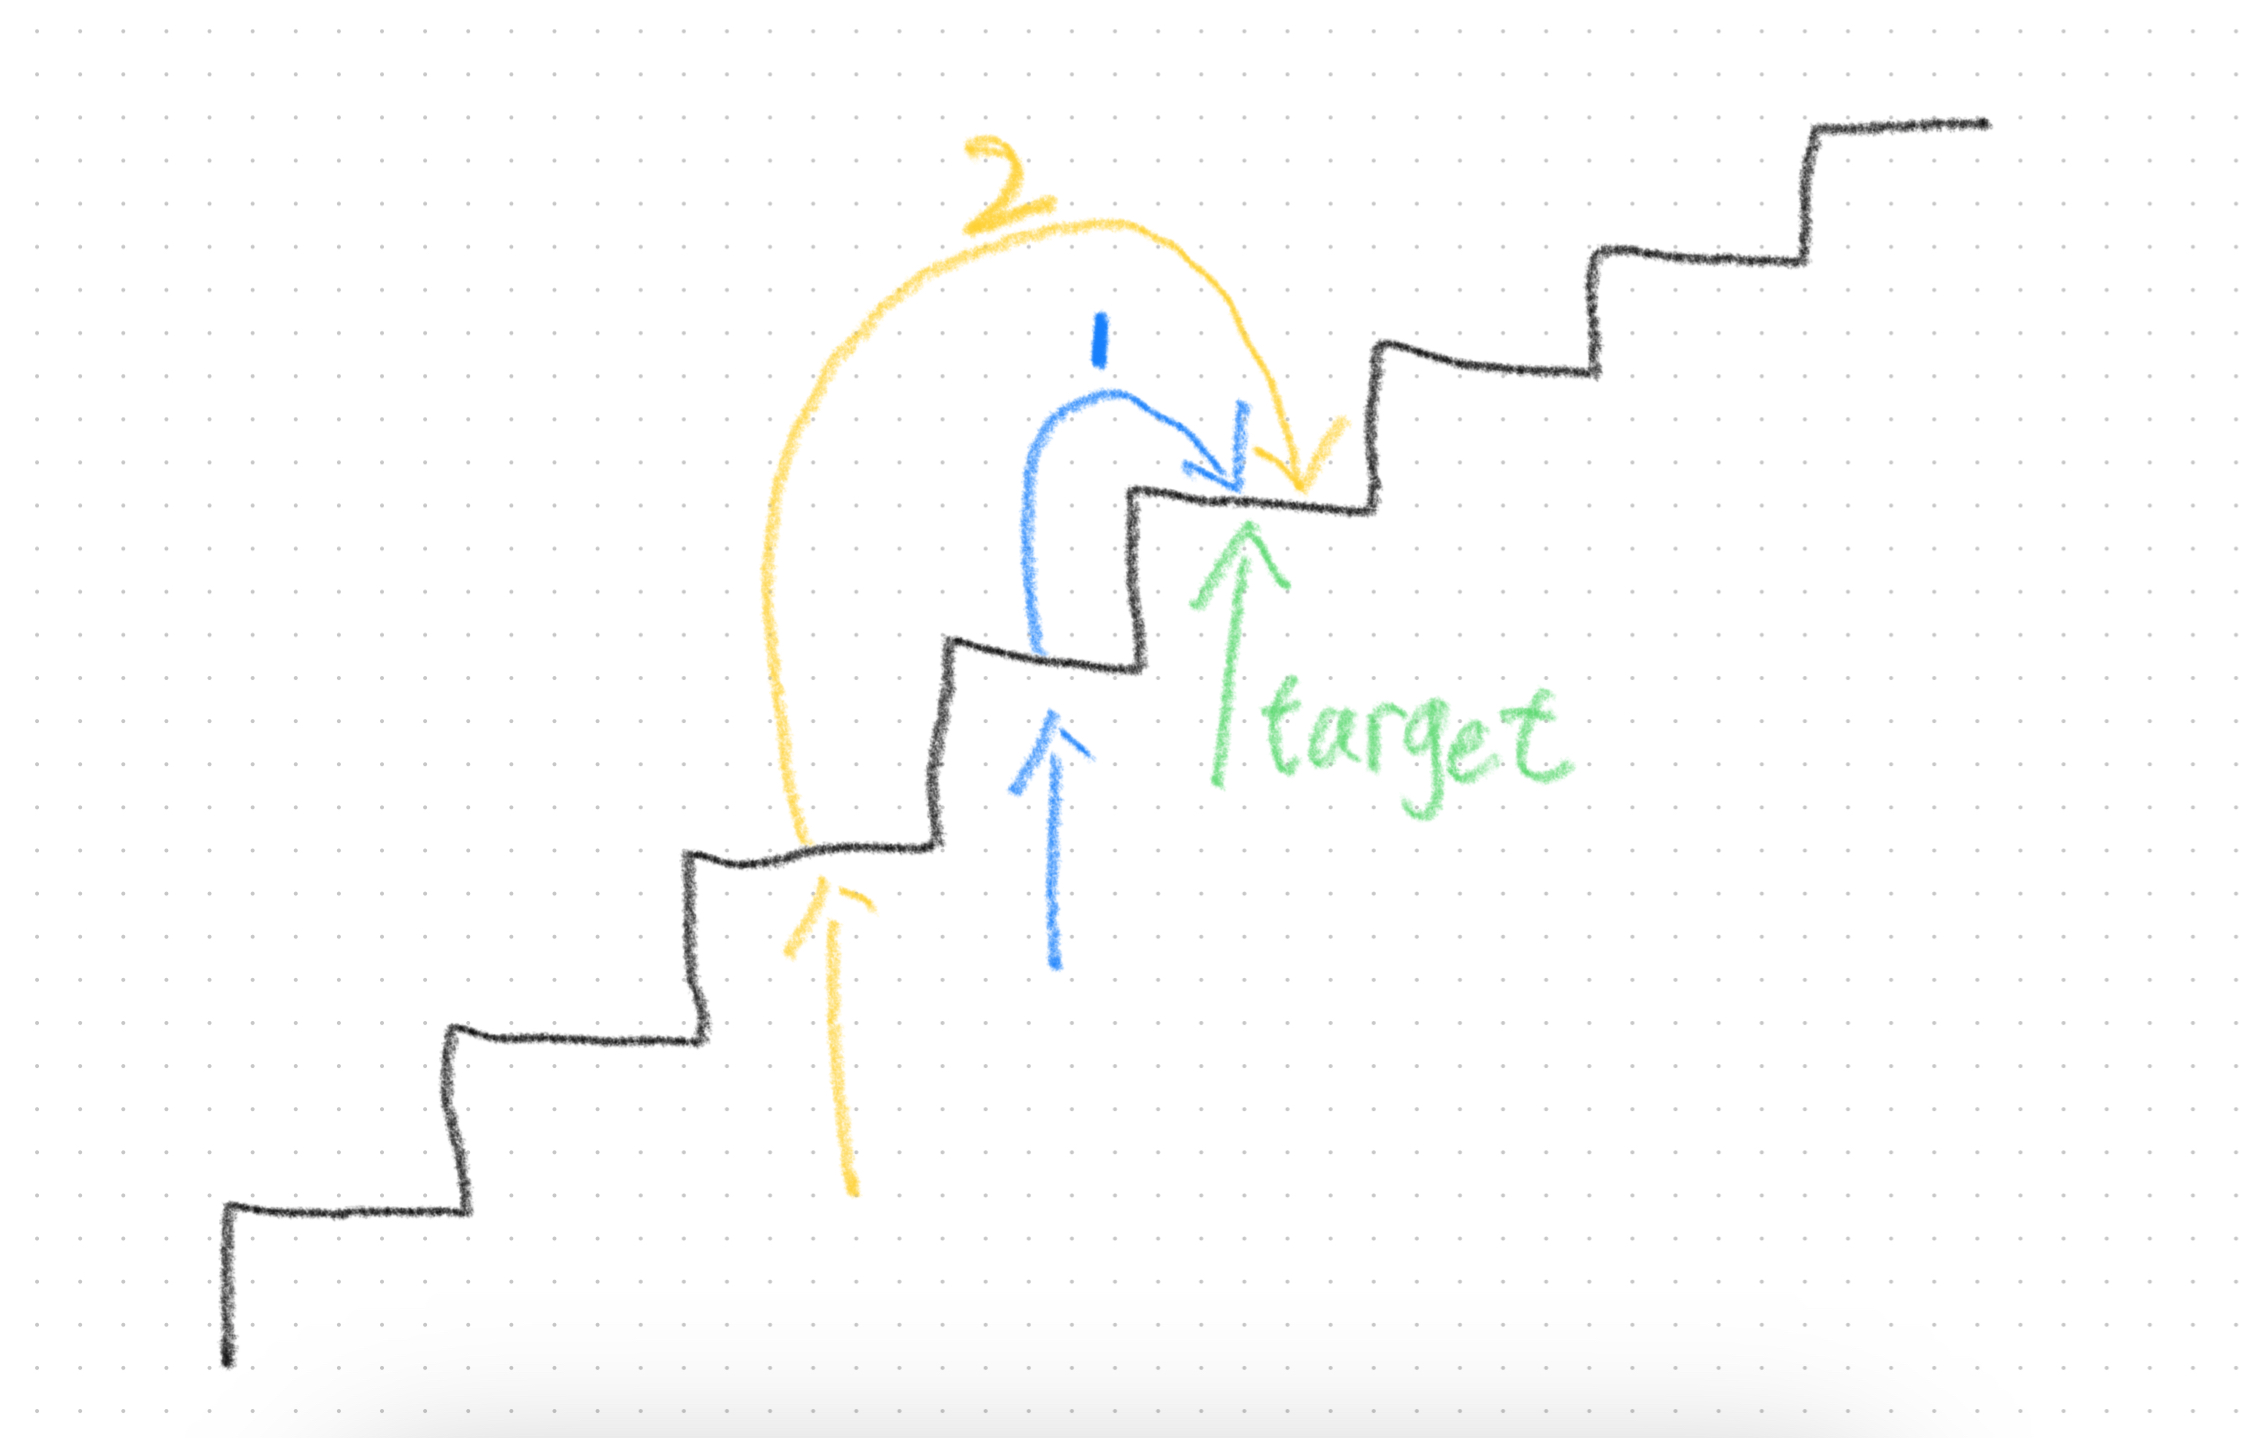 2
1
target